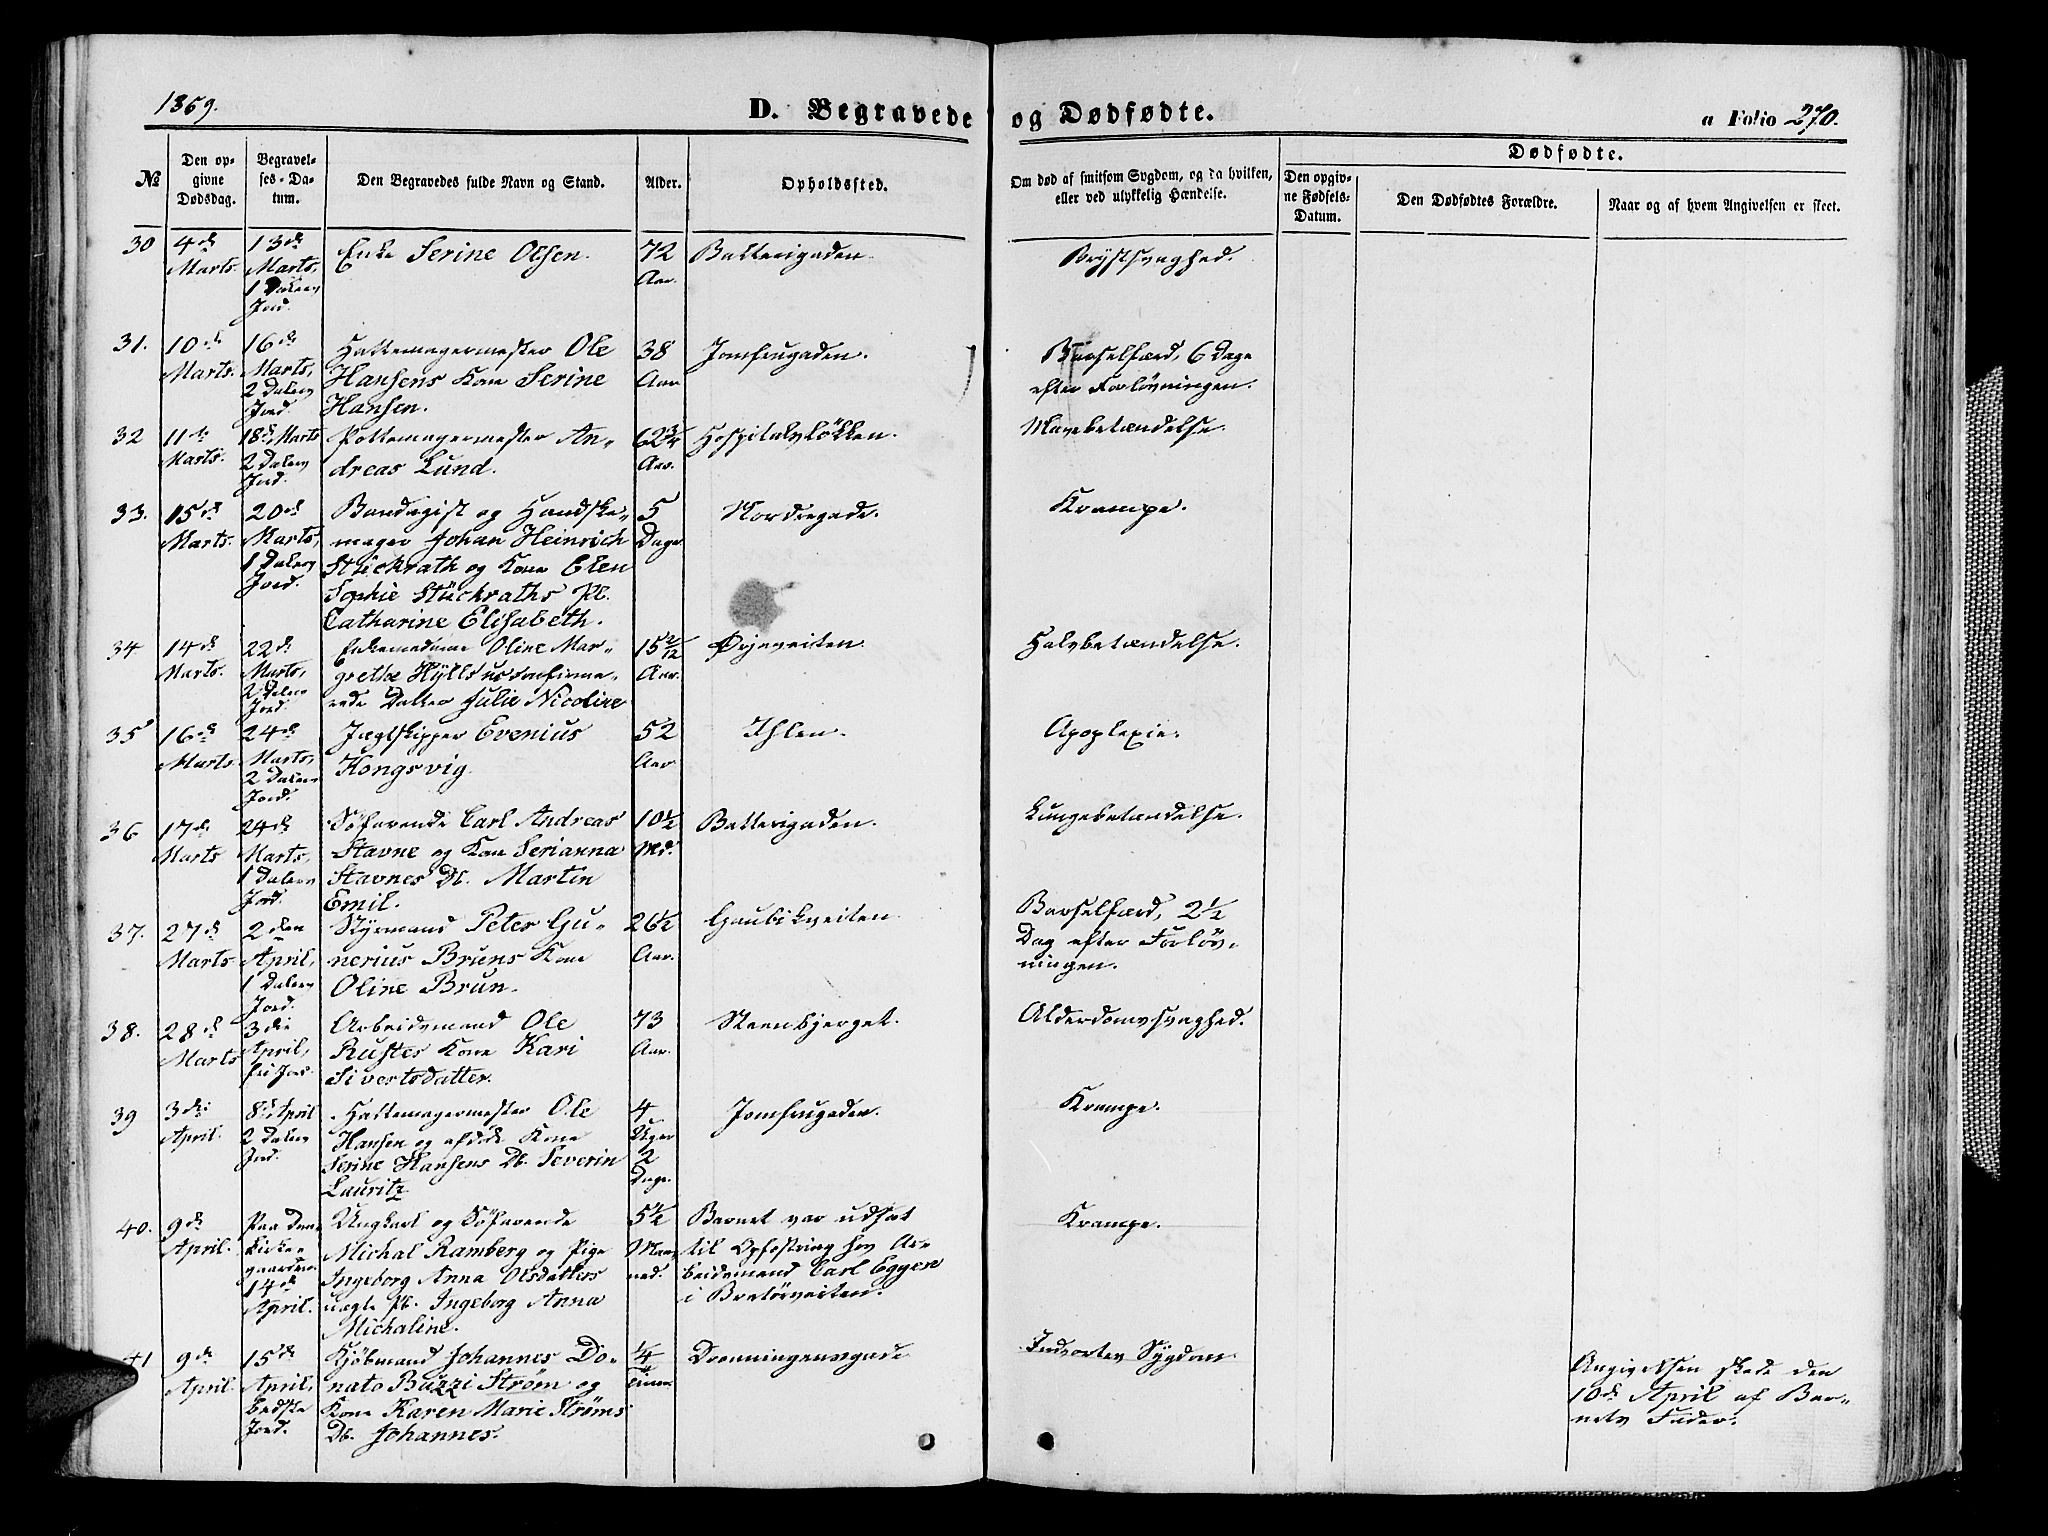 1869.
D. Begravede og Dødfødte.
a Folio 270.
№
Den op-
givne
Dødsdag.
Begravel-
ses-Da-
tum.
Den Begravedes fulde Navn og Stand.
Alder.
Opholdssted.
Om død af smitsom Sygdom, og da hvilken,
eller ved ulykkelig Hændelse.
Dødfødte.
Den opgiv-
ne Fødsels-
Datum.
Den Dødfødtes Forældre.
Naar og af hvem Angivelsen er skeet.
30
4de
Marts.
13de
Marts,
1 Dalers
Jord.
Enke Serine Olsen.
72
Aar.
Batterigaden.
Brystsvaghed.
31.
10de
Marts.
16de
Marts,
2 Dalers
Jord.
Hattemagermester Ole
Hansens Kone Serine
Hansen.
38
Aar
Jomfrugaden.
Barselfærd, 6 Dage
efter Forløsningen.
32
11te
Marts.
18de Marts
2 Dalers
Jord.
Pottemagermester An-
dreas Lund.
62 3/4
Aar.
Hospitalsløkken.
Mavebetændelse.
33.
15de
Marts.
20de
Marts,
1 Dalers
Jord.
Bandagist og Handske-
mager Johan Heinrich
Stückrath og Kone Elen
Sophie Stückraths Pb.
Catharine Elisabeth.
5
Dage
Nordregade.
Krampe.
34
14de
Marts.
22de
Marts,
2 Dalers
Jord.
Enkemadame Oline Mar-
grethe Hylls uconfirme-
rede Datter Julie Nicoline
15 2/12
Aar.
Øijeveiten
Halsbetændelse.
35
16de
Marts
24de
Marts,
2 Dalers
Jord.
Jægtskipper Evenius
Kongsvig.
52
Aar
Ihlen.
Apoplexie.
36
17de
Marts
24de
Marts,
1 Dalers
Jord.
Søfarende Carl Andreas
Stavne og Kone Serianna
Stavnes Db. Martin
Emil.
10 1/2
Md.
Batterigaden.
Lungebetændelse.
37.
27de
Marts
2den
April,
1 Dalers
Jord.
Styrmand Peter Gu-
nerius Bruns Kone
Oline Brun.
26 1/2
Aar.
Gaubikveiten
Barselfærd, 2 1/2
Dag efter Forløs-
ningen.
38.
28de
Marts
3die
April,
fri Jord.
Arbeidsmand Ole
Rustes Kone Kari
Sivertsdatter.
73
Aar.
Steenbjerget.
Alderdomssvaghed.
39
3die
April.
8de April
2 Dalers
Jord.
Hattemagermester Ole
Hansen og afdøde Kone
Serine Hansens Db. Severin
Lauritz
4
Uger
2
Dage.
Jomfrugaden.
Krampe.
40.
9de
April.
Paa Dom-
kirke-
gaarden
14de
April.
Ungkarl og Søfarende
Michal Ramberg og Pige
Ingeborg Anna Olsdatters
uægte Pb. Ingeborg Anna
Michaline.
5 1/2
Maa-
ned.
Barnet var udsat
til Opfostring hos Ar-
beidsmand Carl Eggen
i Bratørveiten.
Krampe.
41
9de
April
15de
April,
bedste
Jord.
Kjøbmand Johannes Do-
nato Buzzi Strøm og
Kone Karen Marie Strøms
Db. Johannes.
1/4
Time
Dronningensgade
Indvortes Sygdom
Angivelsen skede den
10de April af Bar-
nets Fader.